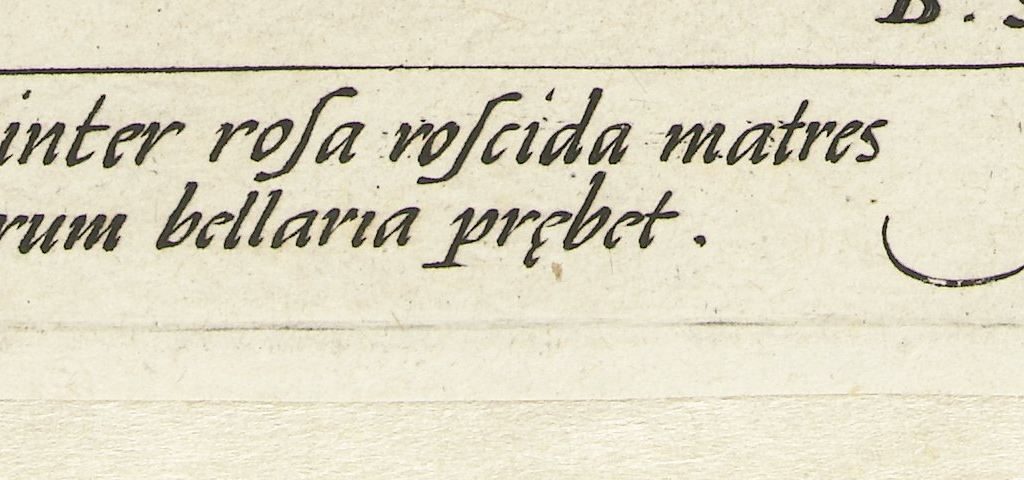 B. S
inter roſa roſcida matres
rum bellaria prębet.